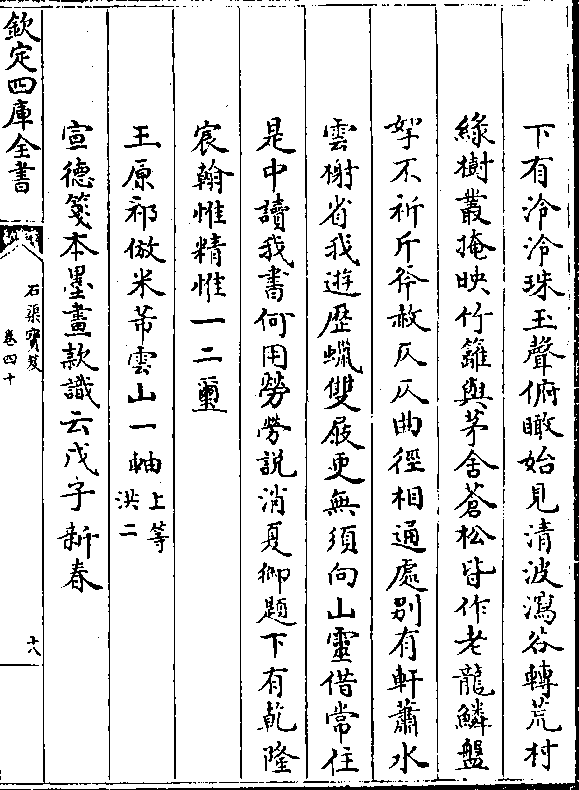 下有泠泠珠玉聲俯瞰始見清波瀉谷轉荒村
緑樹叢掩映竹籬與茅舍蒼松皆作老龍鱗盤
挐不祈斤斧赦仄仄曲徑相通處别有軒蕭水
雲榭省我遊歴蠟雙屐更無須向山靈借常住
是中讀我書何用勞勞説消夏御題下有乾隆
宸翰惟精惟一二璽
王原祁倣米芾雲山一軸 上等 洪二
宣德箋本墨畫款識云戊子新春
欽定四庫全書
石渠寶笈
卷四十
十八